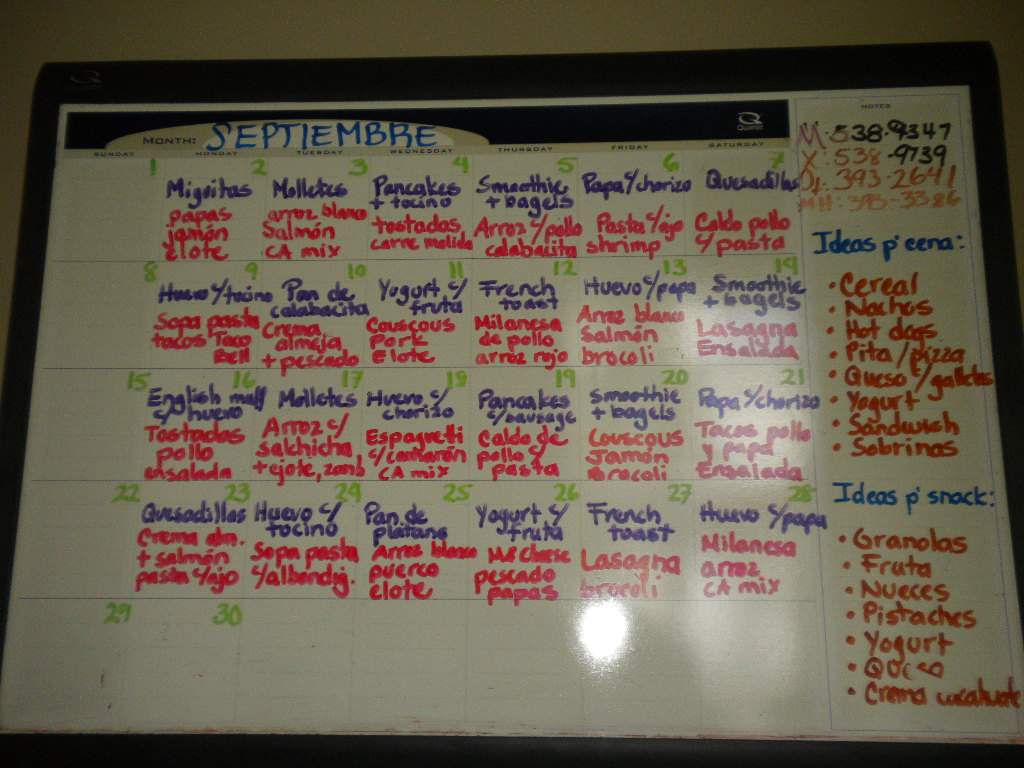 Quartet
MONTH: SEPTIEMBRE
Quartet
NOTES
SUNDAY MONDAY TUESDAY WEDNESDAY THURSDAY FRIDAY SATURDAY
M: 538-9347
X: 538-9739
393-2641
MH: 393-3386
1 2 3 4 5 6 7
Migoitas
papas
jamón
elote
Molletes
arroz blanco
Salmón
CA mix
Pancakes
+ tocino
tostadas
carne molida
Smoothie
+ bagels
Arroz c/pollo
calabacita
Papa c/chorizo
Pasta c/ajo
shrimp
Quesadillas
Caldo pollo
c/pasta
8 9 10 11 12 13 14
Huevo c/tocino
Sopa pasta
tacos Taco
Bell
Pan de
calabacita
Crema
almeja
+ pescado
Yogurt c/
fruta
Couscous
Pork
Elote
French
toast
Milanesa
de pollo
arroz rojo
Huevo c/papa
Arroz blanco
Salmón
brocoli
Smoothie
+ bagels
Lasagna
Ensalada
15 16 17 18 19 20 21
English muff
c/huevo
Tostadas
pollo
ensalada
Molletes
Arroz c/
salchicha
+ ejote, zanb
Huevo c/
chorizo
Espaguetti
c/camarón
CA mix
Pancakes
c/sausage
Caldo de
pollo c/
pasta
Smoothie
+ bagels
Couscous
Jamón
Brocoli
Papa c/chorizo
Tacos pollo
y papa
Ensalada
22 23 24 25 26 27 28
Quesadillas
Crema alm.
+ salmón
pasta c/ajo
Huevo c/
tocino
Sopa pasta
c/albondig.
Pan de
platano
Arroz blanco
puerco
elote
Yogurt c/
fruta
Mc cheese
pescado
papas
French
toast
Lasagna
brocoli
Huevo c/papa
Milanesa
arroz
CA mix
29 30
Ideas p' cena:
• Cereal
• Nachos
• Hot dogs
• Pita/pizza
• Queso c/galletas
• Yogurt
• Sandwish
• Sobrinas
Ideas p' snack:
• Granolas
• Fruta
• Nueces
• Pistaches
• Yogurt
• Queso
• Crema cacahuate